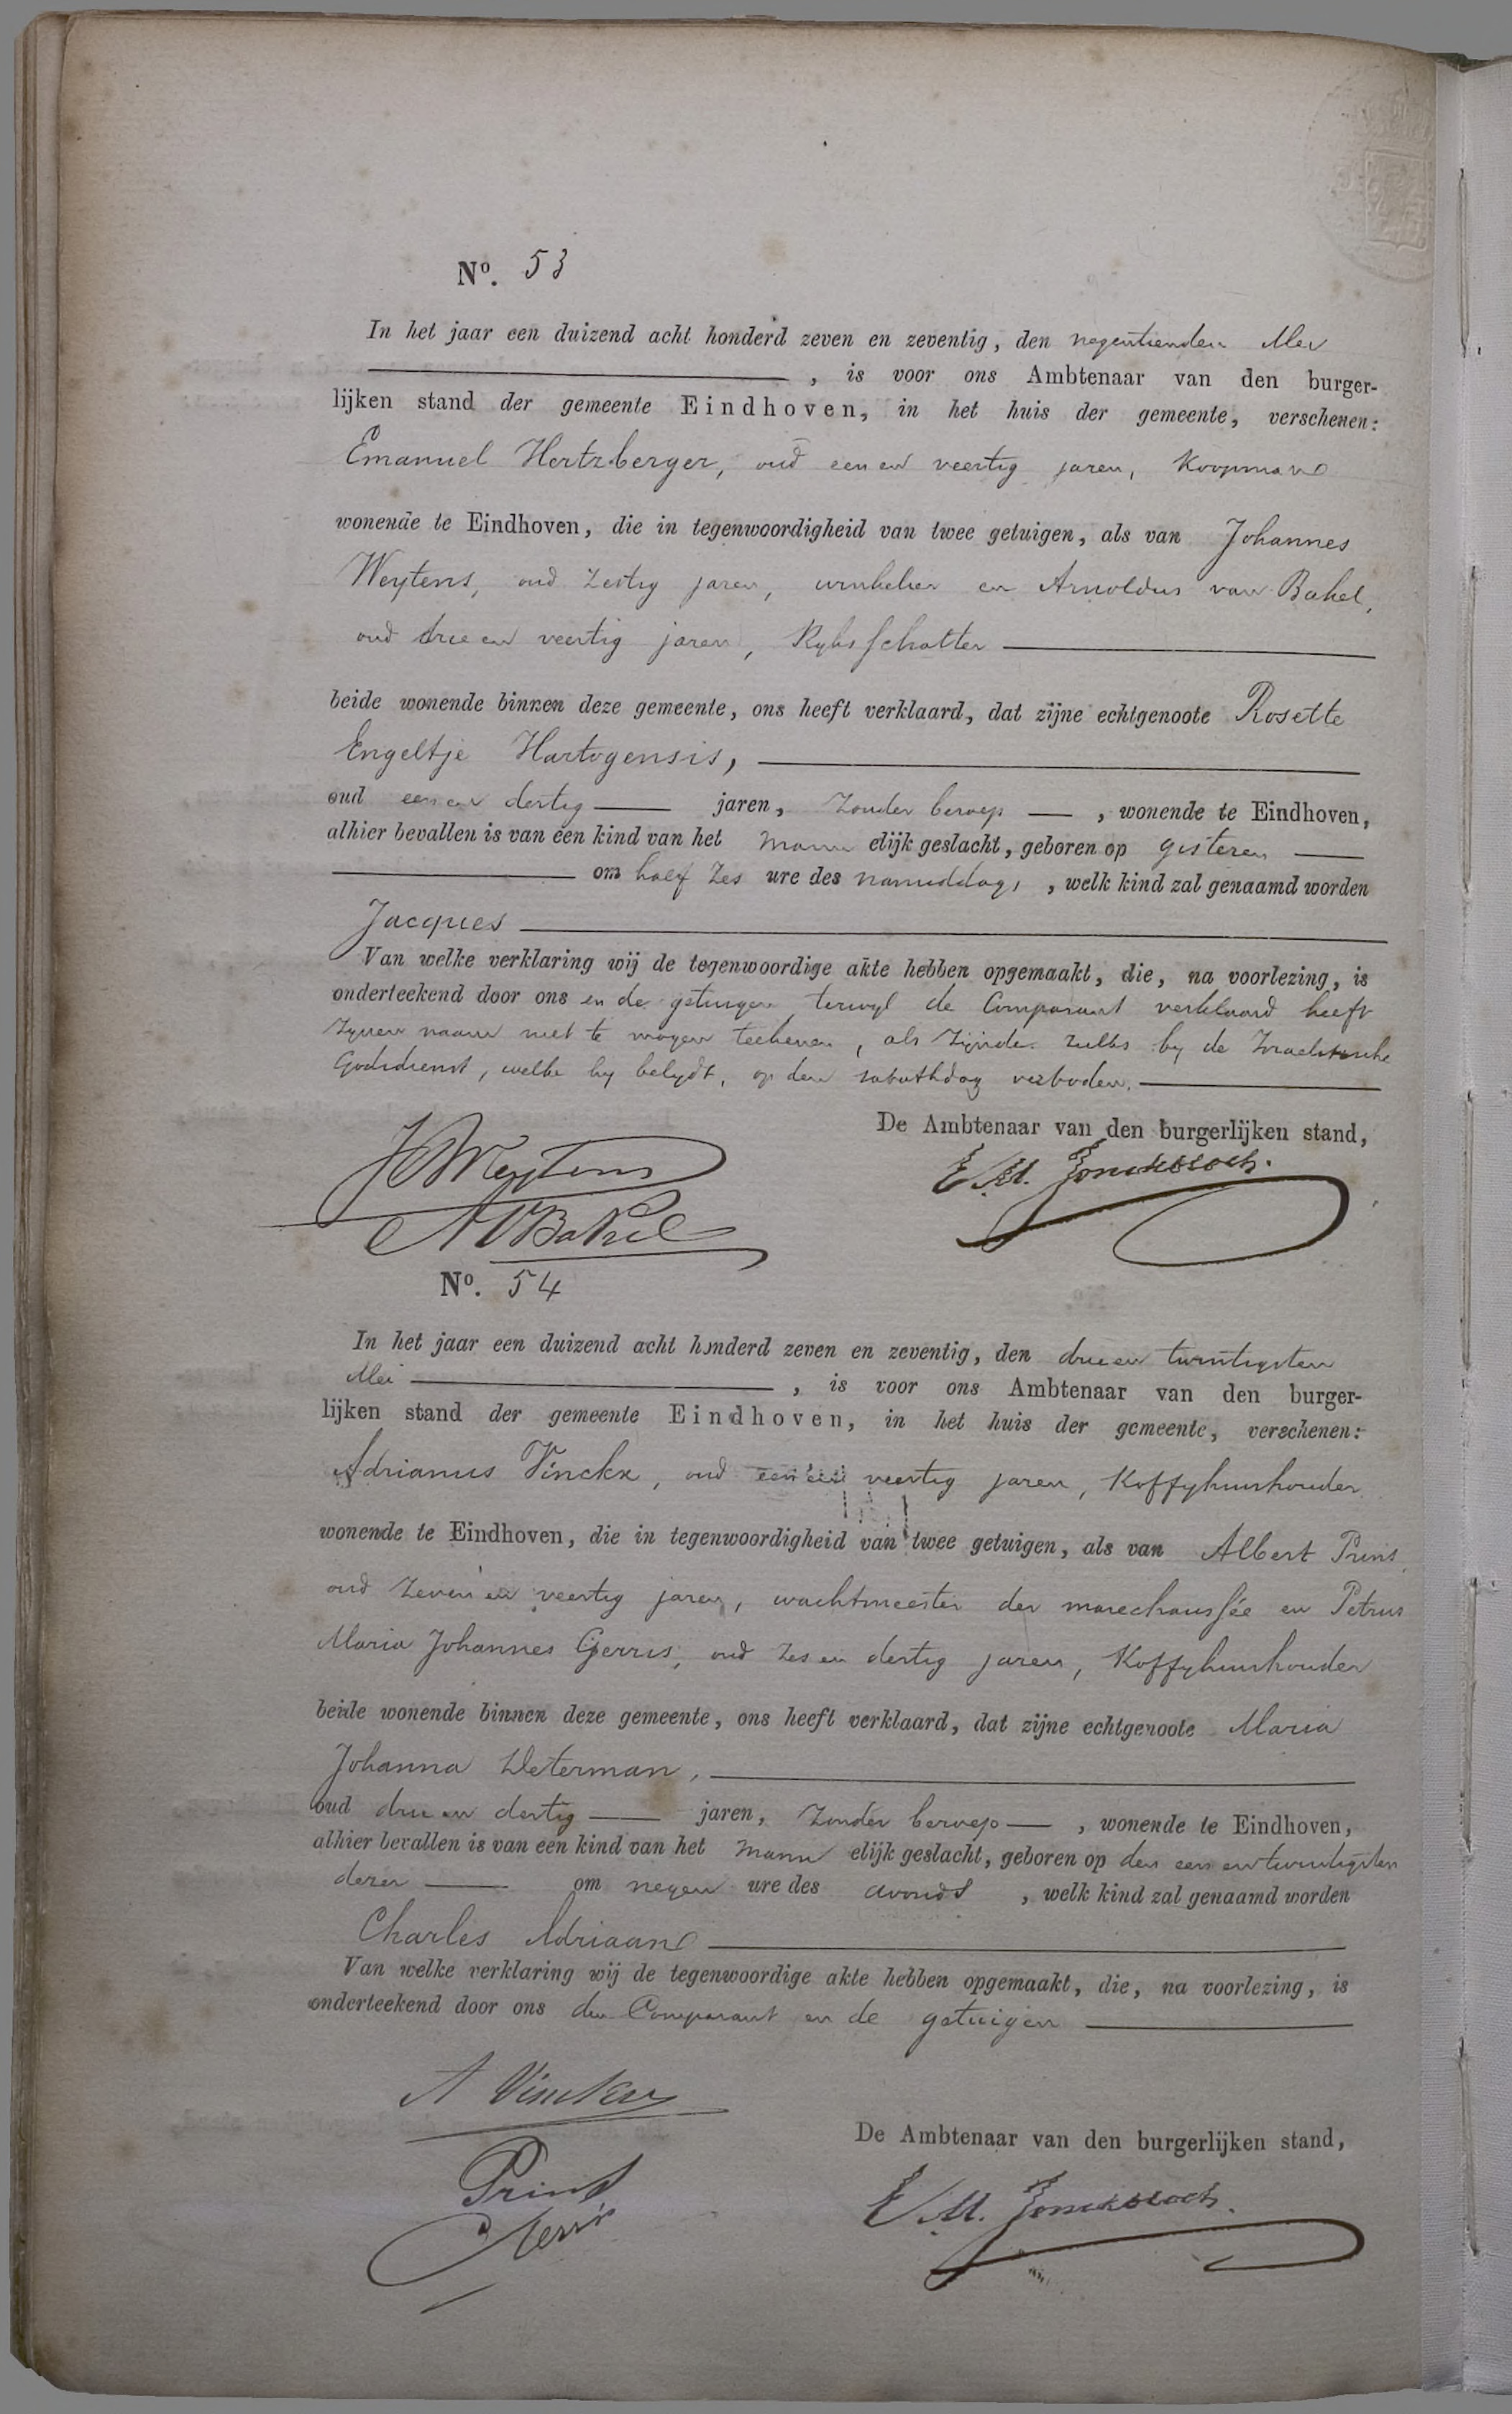 No. 53
In het jaar een duizend acht honderd zeven en zeventig, den negentienden Mei
, is voor ons Ambtenaar van den burger-
lijken stand der gemeente Eindhoven, in het huis der gemeente, verschenen:
Emanuel Hertzberger, oud een en veertig jaren, Koopman
wonende te Eindhoven, die in tegenwoordigheid van twee getuigen, als van Johannes
Weytens, oud zestig jaren, winkelier en Arnoldus van Bakel,
oud drie en veertig jaren, Ryksschatter
beide wonende binnen deze gemeente, ons heeft verklaard, dat zijne echtgenoote Rosette
Engeltje Hartogensis,
oud een en dertig jaren, zonder beroep, wonende te Eindhoven,
alhier bevallen is van een kind van het mannelijk geslacht, geboren op gisteren
om half zes ure des namiddags, welk kind zal genaamd worden
Jacques
Van welke verklaring wij de tegenwoordige akte hebben opgemaakt, die, na voorlezing, is
onderteekend door ons en de getuigen terwyl de Comparant verklaard heeft
zynen naam niet te mogen teekenen, als zijnde zulks by de Israelitische
Godsdienst, welke hy belydt, op den sabathdag verboden.
De Ambtenaar van den burgerlijken stand,
J Weytens
A V Bakel
E.M. Jonckbloch.
No. 54
In het jaar een duizend acht honderd zeven en zeventig, den drie en twintigsten
Mei, is voor ons Ambtenaar van den burger-
lijken stand der gemeente Eindhoven, in het huis der gemeente, verschenen:
Adrianus Vinckx, oud een en veertig jaren, Koffyhuishouder
wonende te Eindhoven, die in tegenwoordigheid van twee getuigen, als van Albert Prins,
oud zeven en veertig jaren, wachtmeester der marechaussée en Petrus
Maria Johannes Gerris, oud zes en dertig jaren, Koffyhuishouder
beide wonende binnen deze gemeente, ons heeft verklaard, dat zijne echtgenoote Maria
Johanna Determan,
oud drie en dertig jaren, zonder beroep, wonende te Eindhoven,
alhier bevallen is van een kind van het mannelijk geslacht, geboren op den een en twintigsten
dezer om negen ure des avonds, welk kind zal genaamd worden
Charles Adriaan
Van welke verklaring wij de tegenwoordige akte hebben opgemaakt, die, na voorlezing, is
onderteekend door ons den Comparant en de getuigen
A Vinckx
De Ambtenaar van den burgerlijken stand,
Prins
Gerris
E.M. Jonckbloch.